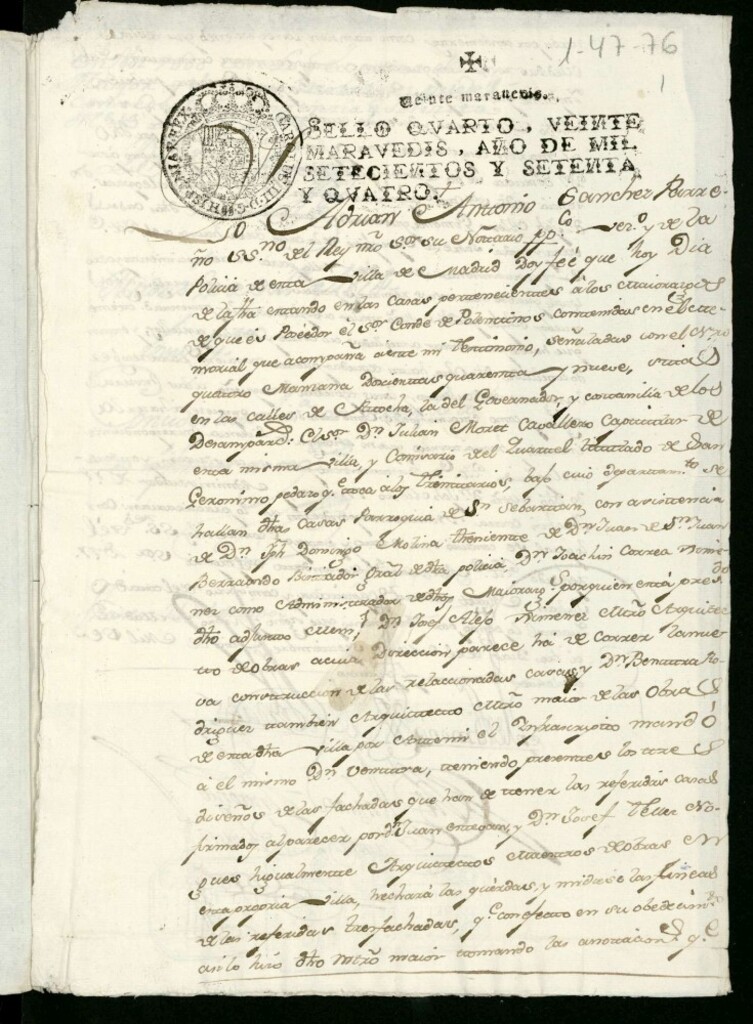 1-47-76
1
Veinte maravedis.
SELLO QVARTO, VEINTE
MARAVEDIS, AÑO DE MIL
SETECIENTOS Y SETENTA
Y QVATRO.
CAROLUS III D G HISPANIAR REX
Yo Adrian Antonio Sanchez Parre-
ño ss.no del Rey nro S.or su Notario pp.co ver.o y de la
Policia de enta Villa de Madrid Doy feé que hoy Dia
de la fha entando en las Casas pertenecientes á los Maiorazgos
de que és Poseedor él S.or Conde de Polentinos contenidas en él
morial que acompaña á ente mi Tentimonio, señaladas con el Nro
quatro Manzana Docientas quarenta y nueve, sitas
en las calles de Atocha, la del Governador, y contanilla de los
Desampar.dos: el S.or D.n Julian Moret Cavallero Capitular de
enta misma Villa, y Comisario del Quartel titulado de San
Geronimo pedazo q.e toca á los Trinitarios, bajo cuio departam.to se
hallan dhas Casas Parroquia de S.n Sebastian, con asistencia
de D.n Jph Domingo Molina theniente de D.n Juan de S.n Juan
Bernardo Visitador Gral de dha policia, D.n Joachin Correa
como Administrador de dhos Maiorazg.s por quien entá pre
dho adjunto Mem.l D.n Josef Alejo Ximenez Mtro Arquitec
to de obras á cuia Direccion parece há de correr la nue
va construccion de las relaccionadas casas y D.n Bentura Ro-
driguez tambien Arquitecto Mtro maior de las Obras
de enta dha Villa por Ante mi el Infrascripto mandó
á el mismo D.n Ventura, teniendo presentes los tres
diseños de las fachadas que han de tener las referidas casas
firmados al parecer por dn Juan y D.n Josef Teller No-
gues higualmente Arquitectos Maentros de obras en
enta propria Villa, hechará las querdas, y midiese las lineas
de las referidas tres fachadas, q.e con efecto en su obedecim.to
asi lo hizo dho Mtro maior tomando las anotacion.s q.e